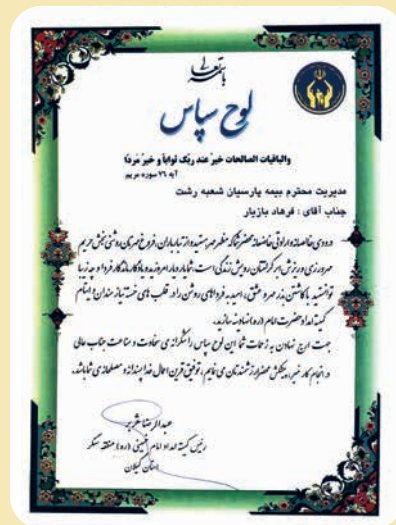 باسمه تعالی
لوح سپاس
والباقیات الصالحات خیرٌ عند ربک ثواباً و خیرٌ مردا
آیه ۷۶ سوره مریم
مدیریت محترم بیمه پارسیان شعبه رشت
جناب آقای : فرهاد بازیار
درودی خالصانه و ارادتی خاضعانه محضر شما که مظهر مهر سپیده و از تبار باران، فروغ مهرتان روشنی بخش حریم
مهرورزی و ریزش ابر کرمتان رویش زندگی است، شمایار دیار امروزید و یادگار ماندگار فردا و چه زیبا
توانستید با کاشتن بذر مهر و عشق، امید به فرداهای روشن را در قلب های خسته نیازمندان و ایتام
کمیته امداد حضرت امام (ره) نهادینه سازید.
جهت ارج نهادن به زحمات شما این لوح سپاس را به شکرانه ی سخاوت و مناعت جناب عالی
در انجام کار خیر، پیشکش محضر ارزشمندتان می نمایم، توفیق قرین اعمال خداپسندانه و مصلحانه ی شما باشد.
عبدالرضا
رئیس کمیته امداد امام خمینی (ره) منطقه سنگر
استان گیلان